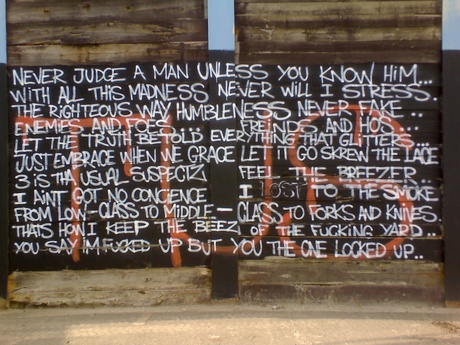 NEVER JUDGE A MAN UNLESS YOU KNOW HIM...
WITH ALL THIS MADNESS NEVER WILL I STRESS..
THE RIGHTEOUS WAY HUMBLENESS NEVER FAKE..
ENEMIES AND FOES FRIENDS AND HO'S...
LET THE TRUTH BE TOLD EVERYTHING THAT GLITTERS...
JUST EMBRACE WHEN WE GRACE LET GO SKREW THE LACE
3 IS THA USUAL SUSPECTZ FEEL THE BREEZER
I AINT GOT NO CONCIENCE I LOST TO THE SMOKE
FROM LOW-CLASS TO MIDDLE-CLASS TO FORKS AND KNIVES.
THATS HOW I KEEP THE BEEZ OF THE FUCKING YARD..
YOU SAY IM FUCKED UP BUT YOU THE ONE LOCKED UP..